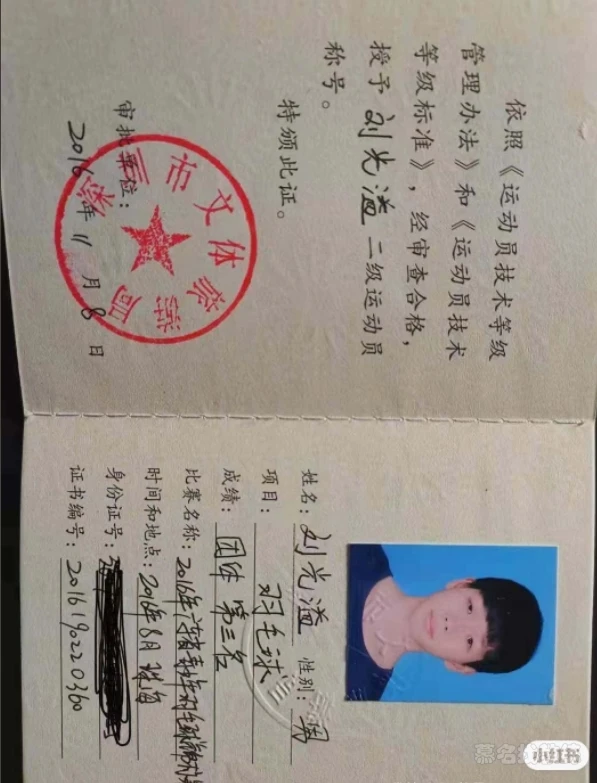 依照《运动员技术等级
管理办法》和《运动员技术
等级标准》，经审查合格，
授予 刘光溢 二级运动员
称号。
特颁此证。
审批单位：
2016年11月8日
市文体旅游局
姓名：刘光溢 性别：男
项目：羽毛球
成绩：团体第三名
比赛名称：2016年
时间和地点：2016年8月 珠海
身份证号：
证书编号：2016190220360
小红书